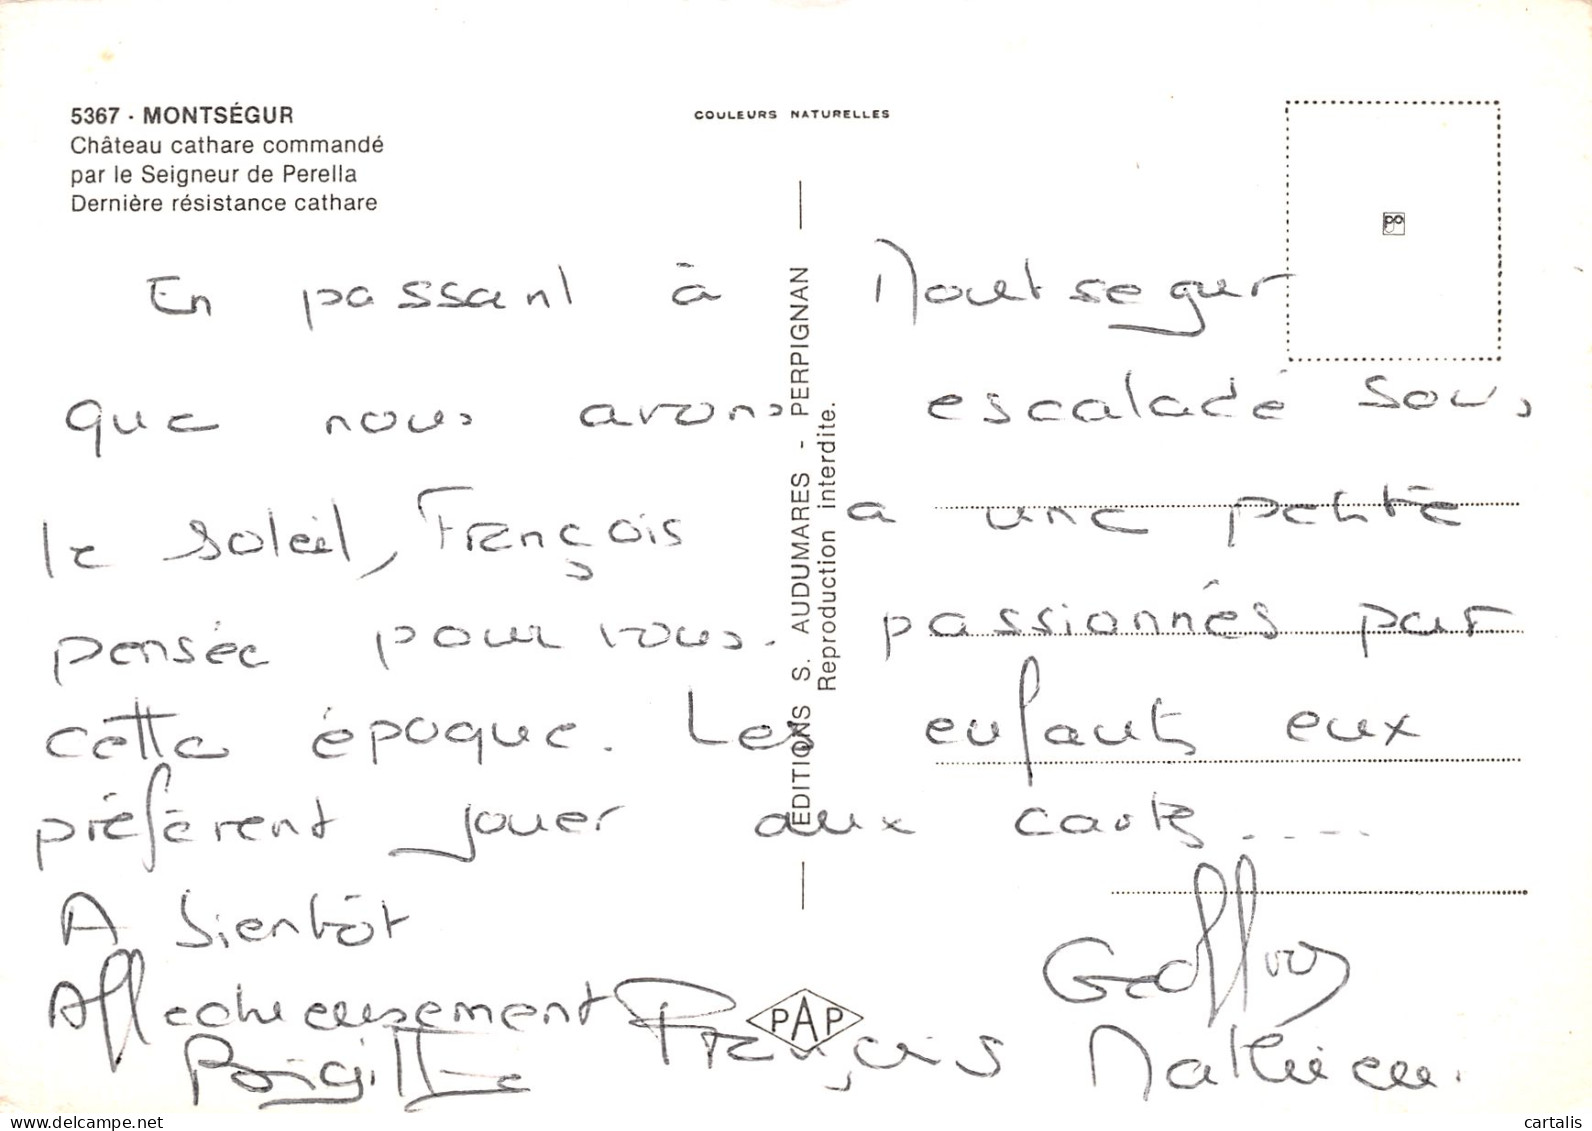 5367 · MONTSÉGUR
Château cathare commandé
par le Seigneur de Perella
Dernière résistance cathare
COULEURS NATURELLES
EDITIONS S. AUDUMARES - PERPIGNAN
Reproduction interdite.
En passant à Montsegur
que nous avons escaladé sous
le soleil, François a une petite
pensée pour vous. passionnés par
cette époque. Les enfants eux
préfèrent jouer aux cartes .....
A bientôt
Affectueusement François Geoffroy
Brigitte Mathieu.
PAP
cartalis